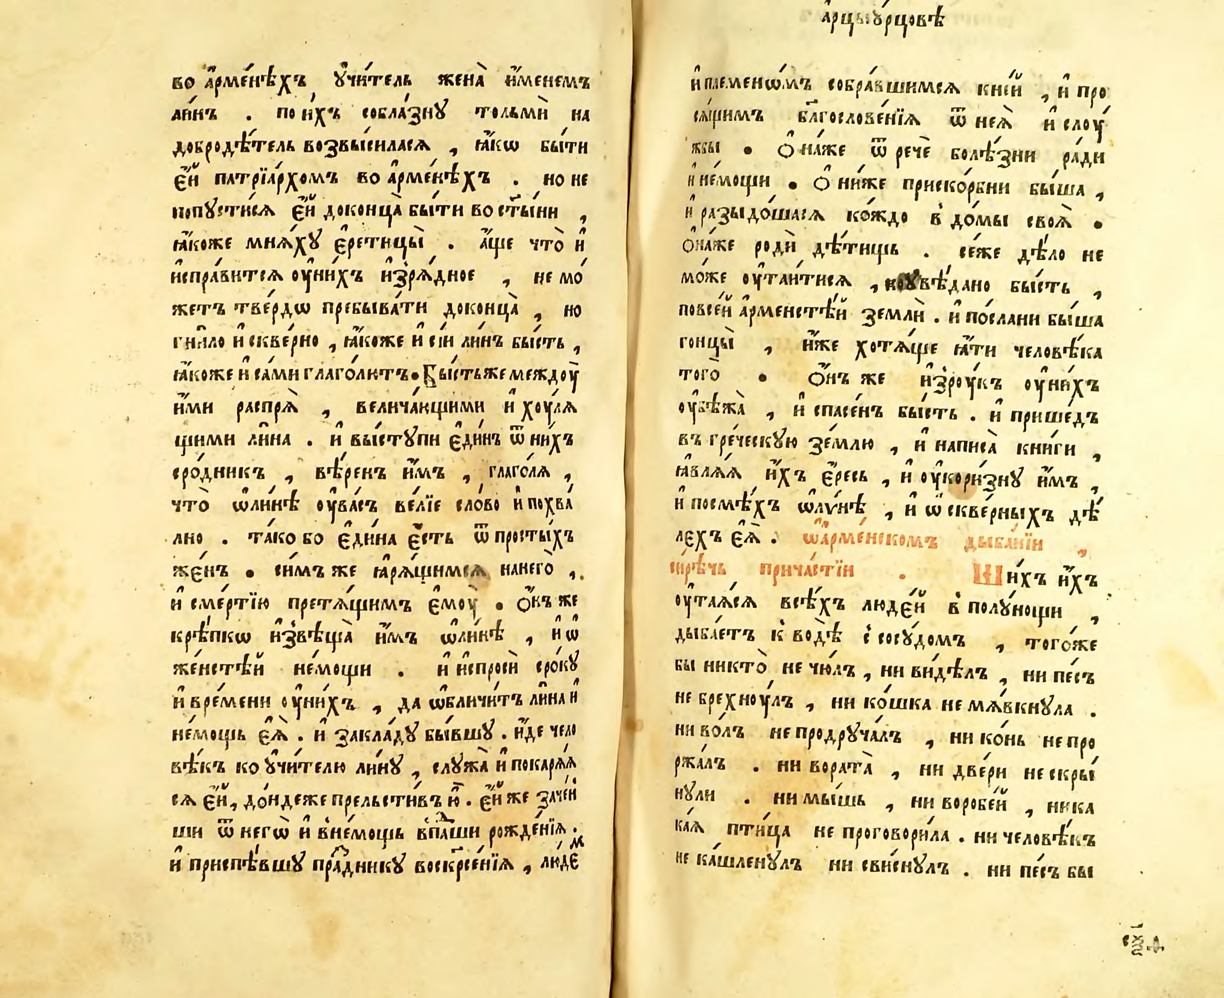 во а҆рме́нѣхъ, ᲂу҆чи́тель жена̀ и҆́менемъ
ли́нъ . по и҆́хъ собла́знꙋ толъмѝ на
добродѣ́тель возвы́силасѧ , ꙗ҆́кѡ бы́ти
є҆́й патрїа́рхомъ во а҆рме́нѣхъ . но не
попꙋсти́сѧ є҆́й доконца̀ бы́ти во ст҃ы́ни ,
ꙗ҆́коже мнѧ́хꙋ є҆ретицы̀ . а҆́ще что̀ и҆
и҆спра́витсѧ ᲂу҆ни́хъ и҆зрѧ́дное , не мо́
жетъ тве́рдѡ пребыва́ти доконца̀ , но
гни́ло и҆ скве́рно , ꙗ҆́коже и҆ сїѝ ли́нъ бы́сть ,
ꙗ҆́коже и҆ са́ми глаго́лютъ . Бы́сть же междоу̀
и҆́ми распрѧ̀ , велича́ющими и҆ хоу́лѧ
щими ли́на . и҆ вы́стꙋпи є҆ди́нъ ѿ ни́хъ
сро́дникъ , вѣ́ренъ и҆́мъ , глаго́лѧ ,
что̀ ѡ҆ли́нѣ ᲂу҆ва́съ ве́лїе сло́во и҆ похва
лно . та́ко бо є҆ди́на є҆́сть ѿ просты́хъ
же́нъ . си́мъ же ꙗ҆рѧ́щимсѧ нанего̀ ,
и҆ сме́ртїю претѧ́щимъ є҆моу̀ . Ѻ҆́нъ же
крѣ́пкѡ и҆звѣща̀ и҆́мъ ѡ҆ли́нѣ , и҆ ѡ҆
же́нстѣй не́мощи . и҆ и҆спросѝ сро́кꙋ
и҆ вре́мени ᲂу҆ни́хъ , да ѡ҆бличи́тъ ли́на и҆
не́мощь є҆ѧ̀ . и҆ закла́дꙋ бы́вшꙋ . и҆́де чело
вѣ́къ ко ᲂу҆чи́телю ли́нꙋ , слꙋжа̀ и҆ покарѧ́ѧ
сѧ є҆́й , до́ндеже прельсти́въ ю҆̀ . є҆́й же заче́н
ши ѿ негѡ̀ и҆ в̾не́мощь в̾па́дши рожде́нїѧ .
и҆ приспѣ́вшꙋ пра́здникꙋ воскрⷭ҇е́нїѧ , лю́деⷨ
а҆рцыᲂу҆рцовѣ
и҆ племенѡ́мъ собра́вшимсѧ кне́й , и҆ про
сѧ́щимъ бл҃гослове́нїѧ ѿ неѧ̀ и҆ слоу́
жбы . Ѻ҆на́же ѿ речѐ болѣ́зни ра́ди
и҆ не́мощи . Ѻ҆ни́же приско́рбни бы́ша ,
и҆ разыдо́шасѧ ко́ждо в̾ до́мы своѧ̀ .
Ѻ҆на́же родѝ дѣ́тищь . се́же дѣ́ло не
мо́же ᲂу҆таи́тисѧ , но ᲂувѣ́дано бы́сть ,
повсе́й а҆рме́нстѣй землѝ . и҆ по́слани бы́ша
гонцы̀ , и҆́же хотѧ́ще ꙗ҆́ти человѣ́ка
того̀ . Ѻ҆́нъ же и҆зроу́къ ᲂу҆ни́хъ
ᲂу҆бѣжа̀ , и҆ спасе́нъ бы́сть . и҆ прише́дъ
въ гре́ческꙋю зе́млю , и҆ написа̀ кни́ги ,
ꙗ҆влѧ́ѧ и҆́хъ є҆́ресь , и҆ ᲂу҆кори́знꙋ и҆́мъ ,
и҆ посмѣ́хъ ѡ҆ли́нѣ , и҆ ѡ҆ скве́рныхъ дѣ́
лехъ є҆ѧ̀ . ѡ҆а҆рме́нскомъ дыба́нїи ,
си́рѣчь прича́стїи . Ши́хъ и҆́хъ
ᲂу҆таѧ́сѧ всѣ́хъ люде́й в̾ полꙋ́нощи ,
дыба́етъ к̾ водѣ̀ с̾ сосꙋ́домъ , того́же
бы никто̀ не чю́лъ , ни ви́дѣлъ , ни пе́съ
не брехноу́лъ , ни ко́шка не мѧ́вкнꙋла .
ни во́лъ не продрꙋча́лъ , ни ко́нь не про
ржа́лъ . ни ворота̀ , ни две́ри не скры́
нꙋли . ни мы́шь , ни воробе́й , ника
ка́ѧ пти́ца не проговори́ла . ни человѣ́къ
не ка́шленꙋлъ ни сви́снꙋлъ . ни пе́съ бы